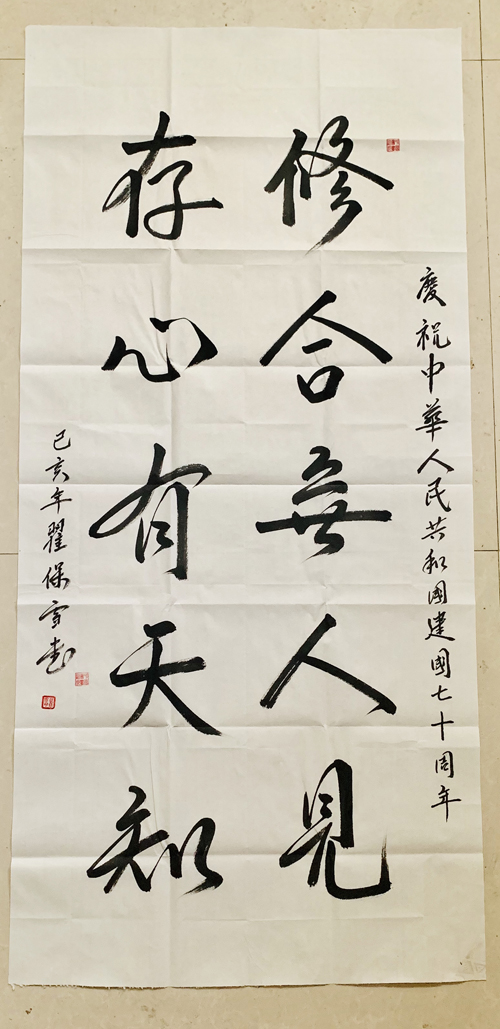 庆祝中華人民共和國建國七十周年
修合無人見
存心有天知
己亥年翟保雪书